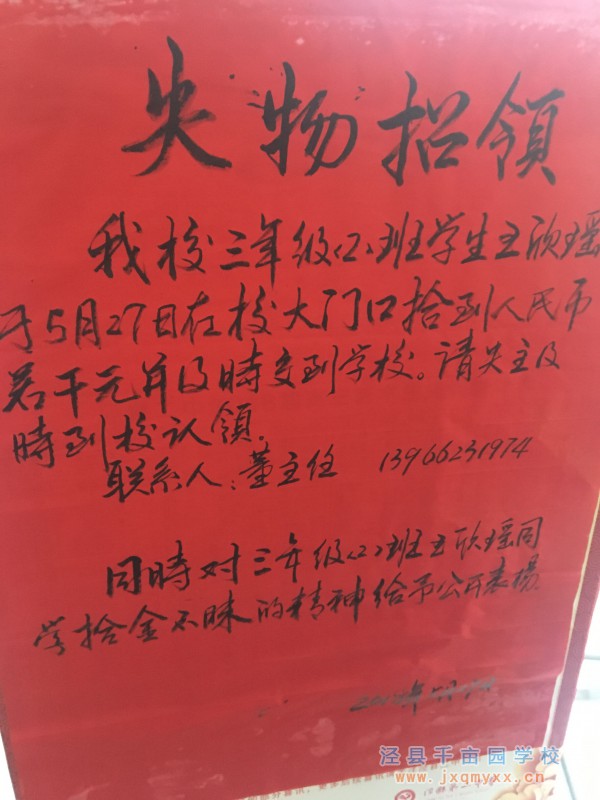 失物招領
我校三年级(2)班学生王欣瑶
于5月27日在校大门口拾到人民币
若干元并及時交到学校。请失主及
時到校认領.
联系人:董主任 13966231974
同時对三年级(2)班王欣瑶同
学拾金不昧的精神给予公开表揚.
泾县千亩园学校
www.jxqmyxx.cn